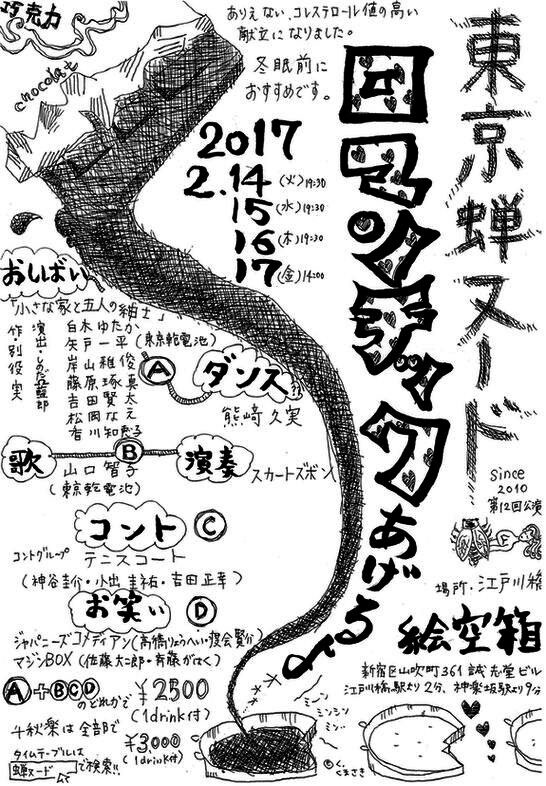 巧克力
chocolat
ありえない、コレステロール値の高い
献立になりました。
冬眠前に
おすすめです。
東京蝉ヌード
since
2010
第12回公演
ロマンクティックあげる
2017
2.14(火)19:30
15(水)19:30
16(木)19:30
17(金)14:00
おしばい
「小さな家と五人の紳士」
作・別役実
演出・
白木ゆたか
矢戸一平(東京乾電池)
岸山雅俊
藤原琢真
吉田賢太
松岡なえ
香川知恵子
A
ダンス
熊﨑久実
歌
B
演奏
山口智子
(東京乾電池)
スカートズボン
コント
C
コントグループ テニスコート
(神谷圭介・小出圭祐・吉田正幸)
お笑い
D
ジャパニーズコメディアン(高橋りょうへい・度会賢介)
マジンBOX(佐藤大二郎・斉藤がはく)
A+BCDのどれかで ¥2500
(1drink付)
千秋楽は全部で ¥3,000
(1drink付)
タイムテーブルは
蝉ヌード で検索!!
場所・江戸川橋
絵空箱
新宿区山吹町361 誠志堂ビル
江戸川橋駅より2分、神楽坂駅より9分
ミーン
ミンミン
ミン…
©くまさき